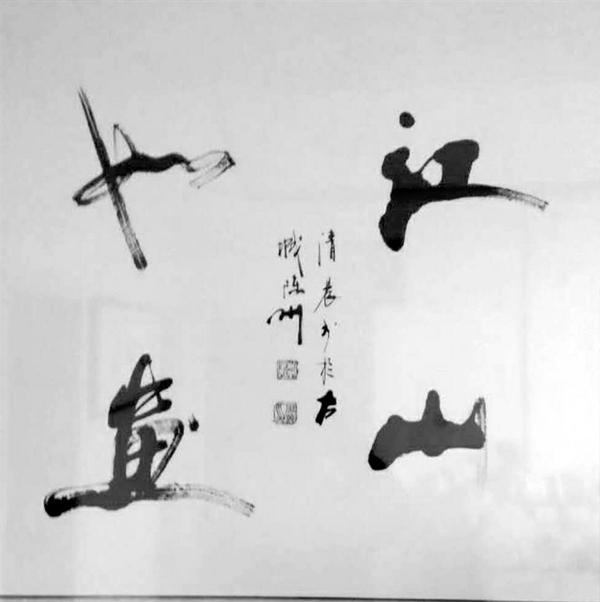 江山
如畫
清晨书於古
城陈州